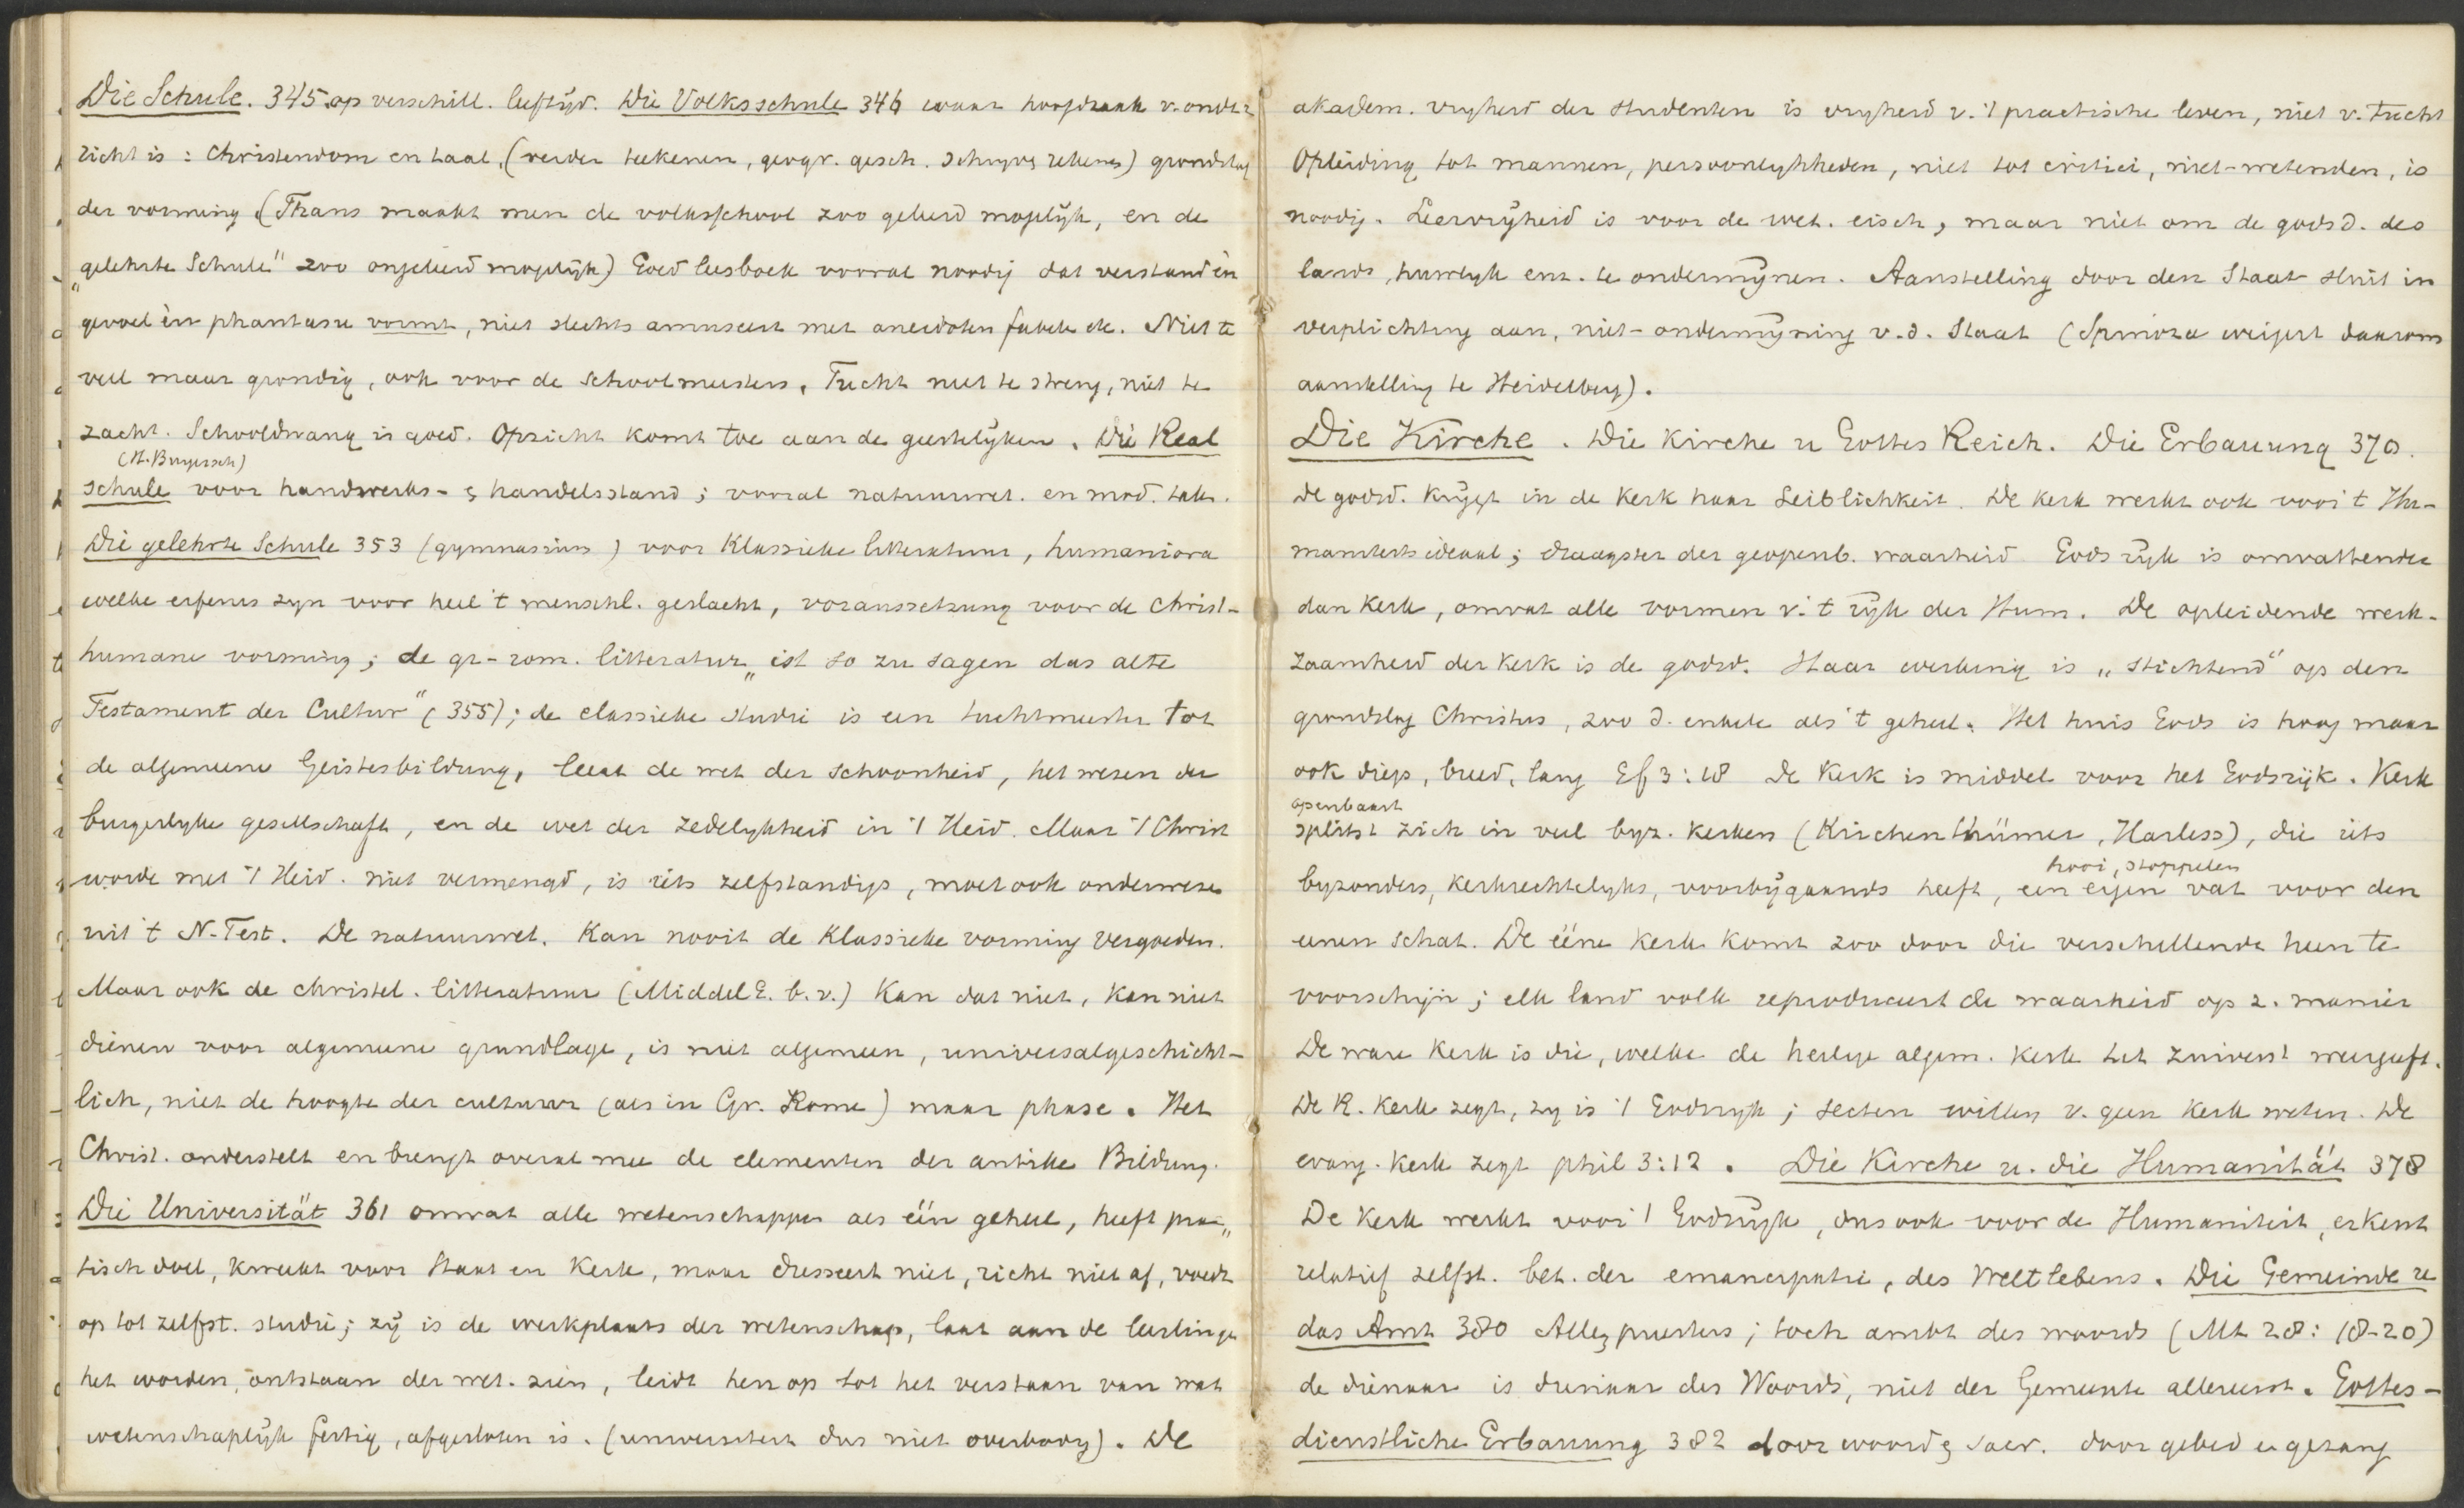 Die Schule. 345. op verschill. leeftijd. Die Volksschule 346 waar hoofdzaak v. onder-
richt is: Christendom en taal, (verder teekenen, geogr. gesch. schrijv. rekenen) grondslag
der vorming. (Thans maakt men de volksschool zoo geleerd mogelijk, en de
„gelehrte Schule" zoo ongeleerd mogelijk) Goed leesboek vooral noodig dat verstand èn
gevoel èn phantasie vormt, niet slechts amuseert met anecdoten fabels etc. Niet te
veel maar grondig, ook voor de schoolmeesters. Tucht niet te streng, niet te
zacht. Schooldwang is goed. Opzicht komt toe aan de geestelijken. Die Real
(H. Burgersch)
schule voor handwerks- & handelsstand; vooral natuurwet. en mod. talen.
Die gelehrte Schule 353 (gymnasium) voor klassieke litteratuur, humaniora
welke erfenis zijn voor heel 't menschl. geslacht, voraussetzung voor de christ-
humane vorming; de gr-rom. litteratur „ist so zu sagen das alte
Testament der Cultur" (355); de classieke studie is een tuchtmeester tot
de algemeene Geistesbildung, leert de wet der schoonheid, het wezen der
burgerlijke gesellschaft, en de wet der zedelijkheid in 't Heid. Maar 't Christ
worde met 't Heid. niet vermengd, is iets zelfstandigs, moet ook onderwezen
uit 't N-Test. De natuurwet. kan nooit de klassieke vorming vergoeden.
Maar ook de christel. litteratuur (MiddelE. b.v.) kan dat niet, kan niet
dienen voor algemeene grundlage, is niet algemeen, universalgeschicht-
lich, niet de hoogte der cultuur (als in Gr. Rome) maar phase. Het
Christ. onderstelt en brengt overal mee de elementen der antieke Bildung.
Die Universität 361 omvat alle wetenschappen als één geheel, heeft prac-
tisch doel, kweekt voor Staat en Kerk, maar dresseert niet, richt niet af, voedt
op tot zelfst. studie; zij is de werkplaats der wetenschap, laat aan de leerlingen
het worden, ontstaan der wet. zien, leidt hen op tot het verstaan van wat
wetenschaplijk fertig, afgesloten is. (universiteit dus niet overbodig). De
akadem. vrijheid der studenten is vrijheid v. 't practische leven, niet v. tucht
Opleiding tot mannen, persoonlijkheden, niet tot critici, niet-wetenden, is
noodig. Leervrijheid is voor de wet. eisch, maar niet om de godsd. des
lands, huwlijk enz. te ondermijnen. Aanstelling door den Staat sluit in
verplichting aan, niet-ondermijning v.d. Staat (Spinoza weigert daarom
aanstelling te Heidelberg).
Die Kirche. Die Kirche u Gottes Reich. Die Erbauung 370.
de godsd. krijgt in de Kerk haar Leiblichkeit. De kerk werkt ook voor 't Hu-
maniteitsideaal; draagster der geopenb. waarheid Gods rijk is omvattender
dan Kerk, omvat alle vormen v. 't rijk der Hum. De opleidende werk-
zaamheid der Kerk is de godsd. Haar werking is „stichtend" op den
grondslag Christus, zoo d. enkele als 't geheel. Het huis Gods is hoog maar
ook diep, breed, lang Ef 3:18 De Kerk is middel voor het Godsrijk. Kerk
openbaart
splitst zich in veel byz. kerken (Kirchenthümer, Harless), die iets
hooi, stoppelen
byzonders, kerkrechtelijks, voorbijgaands heeft, een eigen vat voor den
eenen schat. De ééne Kerk komt zoo door die verschillende heen te
voorschijn; elk land volk reproduceert de waarheid op z. manier
De ware Kerk is die, welke de heilige algem. Kerk het zuiverst weergeeft.
De R. Kerk zegt, zij is 't Godsrijk; secten willen v. geen Kerk weten. De
evang. Kerk zegt phil 3:12. Die Kirche u. die Humanität 378
De Kerk werkt voor 't Godsrijk, dus ook voor de Humaniteit, erkent
relatief zelfst. bet. der emancipatie, des Weltlebens. Die Gemeinde u
das Amt 380 Allen priesters; toch ambt des woords (Mt 28:18-20)
de dienaar is dienaar des Woords, niet der Gemeente allereerst. Gottes-
dienstliche Erbauung 382 door woord & sacr. door gebed en gezang